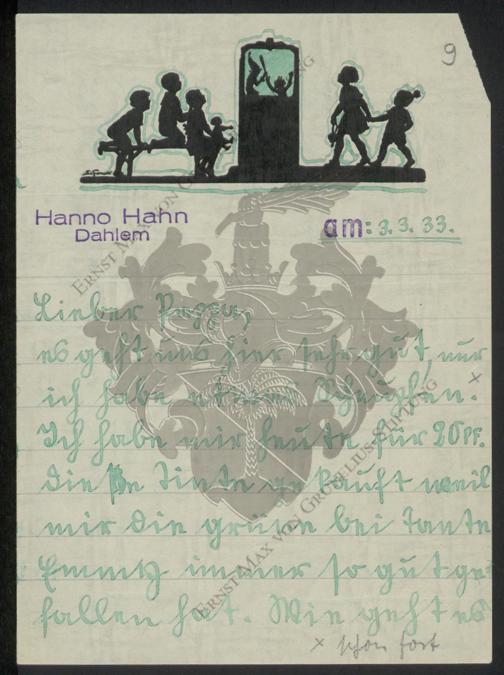 9
Hanno Hahn
Dahlem
am: 3. 3. 33.
Lieber Pappa,
es geht uns hier sehr gut, nur
ich habe etwas Schnupfen. ×
Ich habe mir heute für 20 Pf.
die Tinte gekauft weil
mir die grüne bei Tante
Emmy immer so gut ge
fallen hat. Wie geht es
× schon fort
ERNST MAX VON GRUNELIUS-STIFTUNG
ERNST MAX VON GRUNELIUS-STIFTUNG